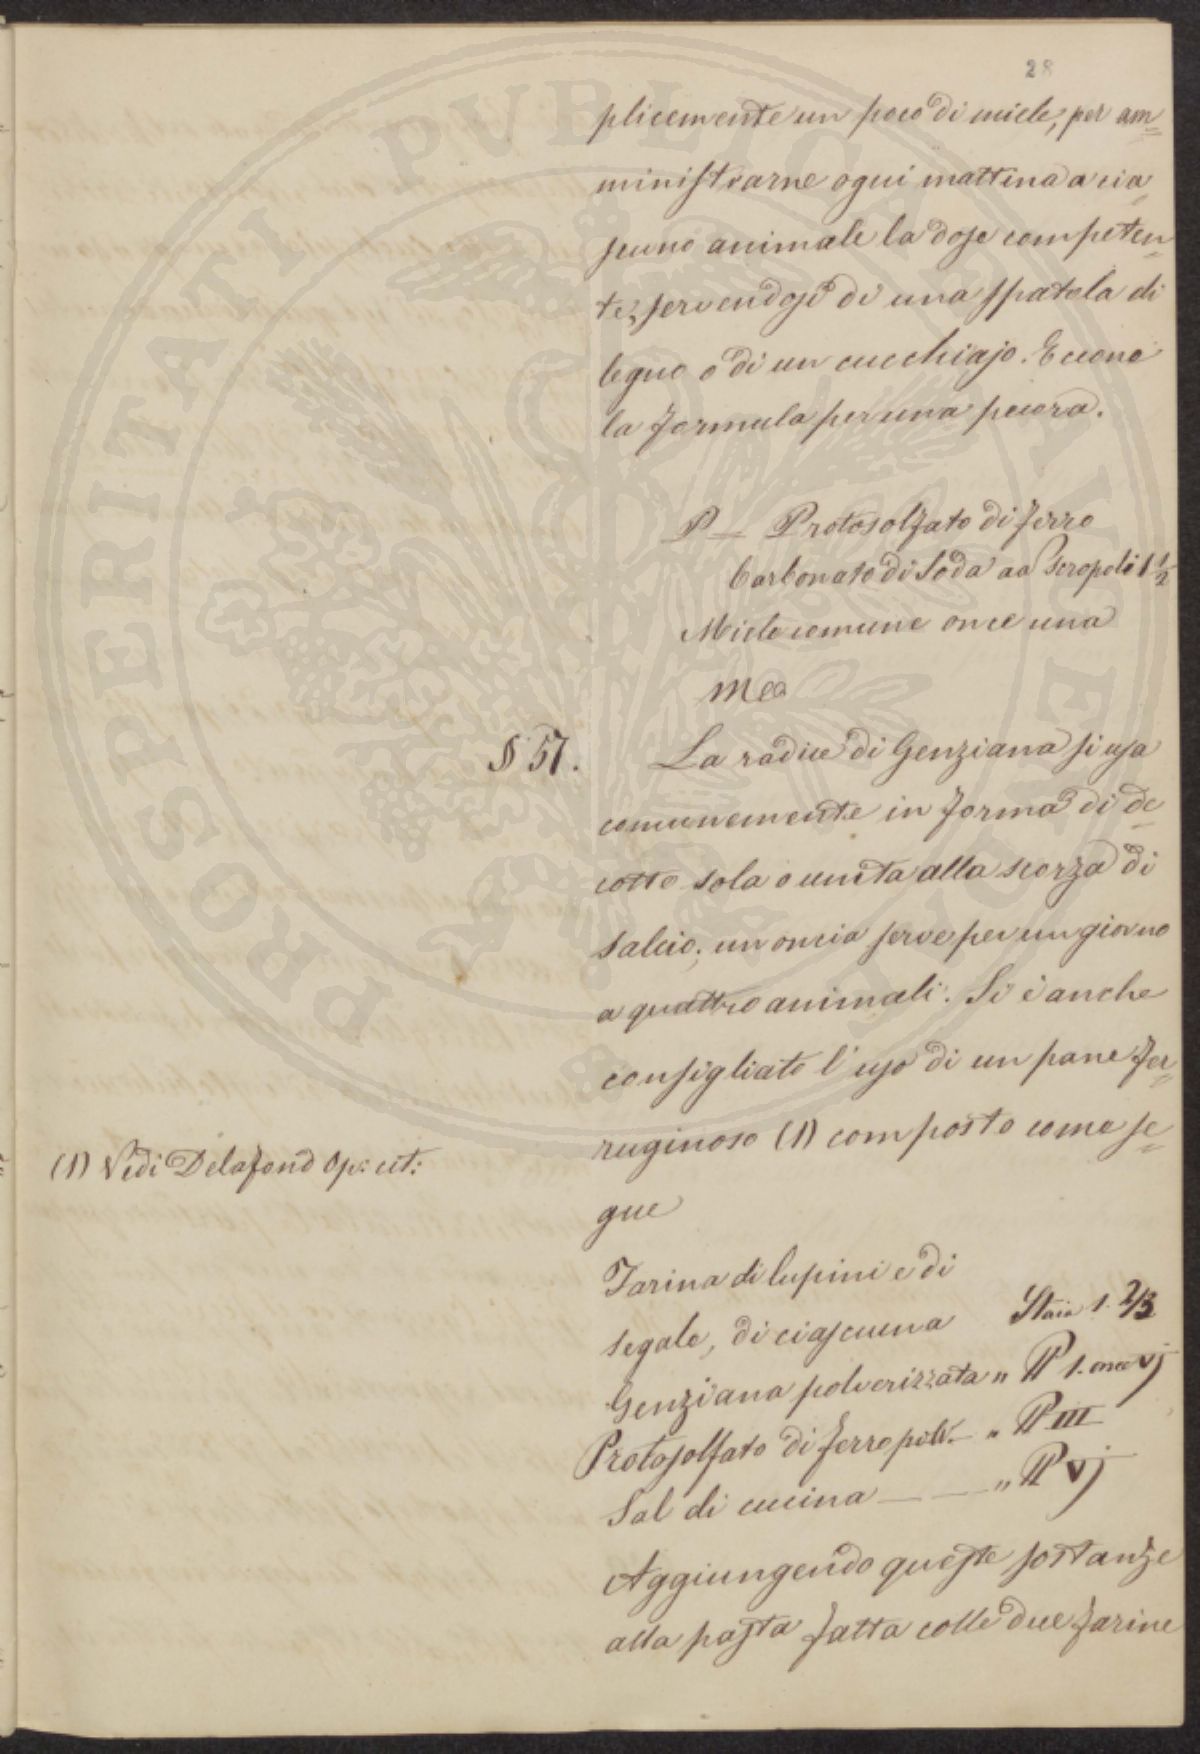 28
plicemente un poco di miele, per am=
ministrarne ogni mattina a cia=
scuno animale la dose competen=
te, servendosi di una spatola di
legno o di un cucchiajo. Eccone
la formula per una pecora.
P — Protosolfato di ferro
Carbonato di Soda aa Scropoli 1 1/2
Miele comune once una
§ 57. La radice di Genziana si usa
comunemente in forma di de=
cotto sola o unita alla scorza di
salcio; un oncia serve per un giorno
a quattro animali. Si è anche
consigliato l'uso di un pane fer=
ruginoso (1) composto come se=
(1) Vedi Delafond Op: cit:
gue
Farina di lupini e di
segale, di ciascuna Staia 1. 2/3
Genziana polverizzata " 1. once vj
Protosolfato di ferro polv. — " III
Sal di cucina — — " vj
Aggiungendo queste sostanze
alla pasta fatta colle due farine
PROSPERITATI PVBLICAE AVGENDAE